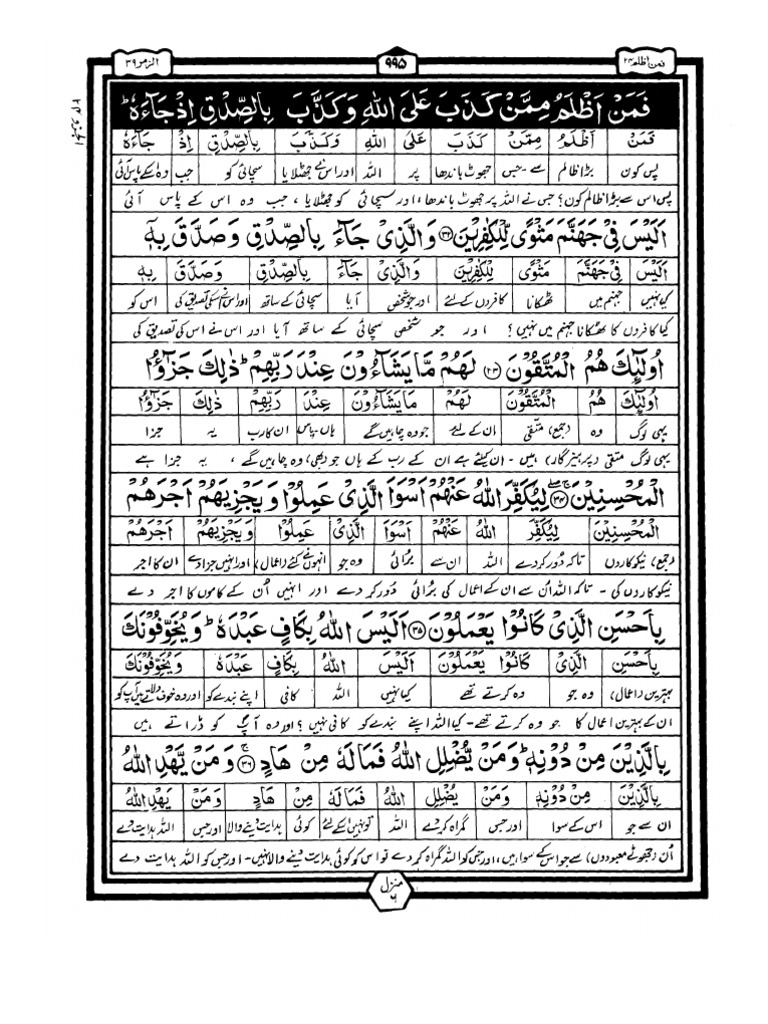 الزمر ۳۹
۹۹۵
فمن اظلم ۲۴
فَمَنْ اَظْلَمُ مِمَّنْ كَذَبَ عَلَى اللّٰهِ وَكَذَّبَ بِالصِّدْقِ اِذْ جَآءَهٗ ؕ
فَمَنْ اَظْلَمُ مِمَّنْ كَذَبَ عَلَى اللّٰهِ وَكَذَّبَ بِالصِّدْقِ اِذْ جَآءَهٗ
پس کون بڑا ظالم سے۔جس جھوٹ باندھا پر اللہ اور اس نے جھٹلایا سچائی کو جب وہ اسکے پاس آئی
پس اس سے بڑا ظالم کون؟ جس نے اللہ پر جھوٹ باندھا، اور سچائی کو جھٹلایا، جب وہ اس کے پاس آئی
اَلَيْسَ فِيْ جَهَنَّمَ مَثْوًى لِّلْكٰفِرِيْنَ ۳۲ وَالَّذِيْ جَآءَ بِالصِّدْقِ وَصَدَّقَ بِهٖٓ
اَلَيْسَ فِيْ جَهَنَّمَ مَثْوًى لِّلْكٰفِرِيْنَ وَالَّذِيْ جَآءَ بِالصِّدْقِ وَصَدَّقَ بِهٖٓ
کیا نہیں جہنم میں ٹھکانا کافروں کے لئے اور جو شخص آیا سچائی کے ساتھ اور اس نے اسکی تصدیق کی اس کو
کیا کافروں کا ٹھکانا جہنم میں نہیں؟ اور جو شخص سچائی کے ساتھ آیا اور اس نے اس کی تصدیق کی
اُولٰٓئِكَ هُمُ الْمُتَّقُوْنَ ۳۳ لَهُمْ مَّا يَشَآءُوْنَ عِنْدَ رَبِّهِمْ ؕ ذٰلِكَ جَزٰٓؤُا
اُولٰٓئِكَ هُمُ الْمُتَّقُوْنَ لَهُمْ مَا يَشَآءُوْنَ عِنْدَ رَبِّهِمْ ذٰلِكَ جَزٰٓؤُا
یہی لوگ وہ (جمع) متقی ان کے لئے جو وہ چاہیں گے ہاں۔پاس ان کا رب یہ جزا
یہی لوگ متقی (پرہیزگار) ہیں۔ ان کیلئے ہے ان کے رب کے ہاں جو (بھی) وہ چاہیں گے، یہ جزا ہے
الْمُحْسِنِيْنَ ۳۴ لِيُكَفِّرَ اللّٰهُ عَنْهُمْ اَسْوَاَ الَّذِيْ عَمِلُوْا وَيَجْزِيَهُمْ اَجْرَهُمْ
الْمُحْسِنِيْنَ لِيُكَفِّرَ اللّٰهُ عَنْهُمْ اَسْوَاَ الَّذِيْ عَمِلُوْا وَيَجْزِيَهُمْ اَجْرَهُمْ
(جمع) نیکوکاروں تاکہ دور کر دے اللہ ان سے برائی وہ جو انہوں نے کئے (اعمال) اور انہیں جزا دے ان کا اجر
نیکوکاروں کی۔ تاکہ اللہ اُن سے ان کے اعمال کی برائی دور کر دے اور انہیں اُن کے کاموں کا اجر دے
بِاَحْسَنِ الَّذِيْ كَانُوْا يَعْمَلُوْنَ ۳۵ اَلَيْسَ اللّٰهُ بِكَافٍ عَبْدَهٗ ؕ وَيُخَوِّفُوْنَكَ
بِاَحْسَنِ الَّذِيْ كَانُوْا يَعْمَلُوْنَ اَلَيْسَ اللّٰهُ بِكَافٍ عَبْدَهٗ وَيُخَوِّفُوْنَكَ
بہترین (اعمال) وہ جو وہ کرتے تھے کیا نہیں اللہ کافی اپنے بندے کو اور وہ خوف دلاتے ہیں آپ کو
ان کے بہترین اعمال کا جو وہ کرتے تھے۔ کیا اللہ اپنے بندے کو کافی نہیں؟ اور وہ آپ کو ڈراتے ہیں
بِالَّذِيْنَ مِنْ دُوْنِهٖ ؕ وَمَنْ يُّضْلِلِ اللّٰهُ فَمَا لَهٗ مِنْ هَادٍ ۳۶ وَمَنْ يَّهْدِ اللّٰهُ
بِالَّذِيْنَ مِنْ دُوْنِهٖ وَمَنْ يُضْلِلِ اللّٰهُ فَمَا لَهٗ مِنْ هَادٍ وَمَنْ يَهْدِ اللّٰهُ
ان سے جو اس کے سوا اور جس گمراہ کر دے اللہ تو نہیں اسکے لئے کوئی ہدایت دینے والا اور جس اللہ ہدایت دے
اُن (جھوٹے معبودوں) سے جو اس کے سوا ہیں، اور جس کو اللہ گمراہ کر دے تو اس کو کوئی ہدایت دینے والا نہیں۔ اور جس کو اللہ ہدایت دے
منزل ۶